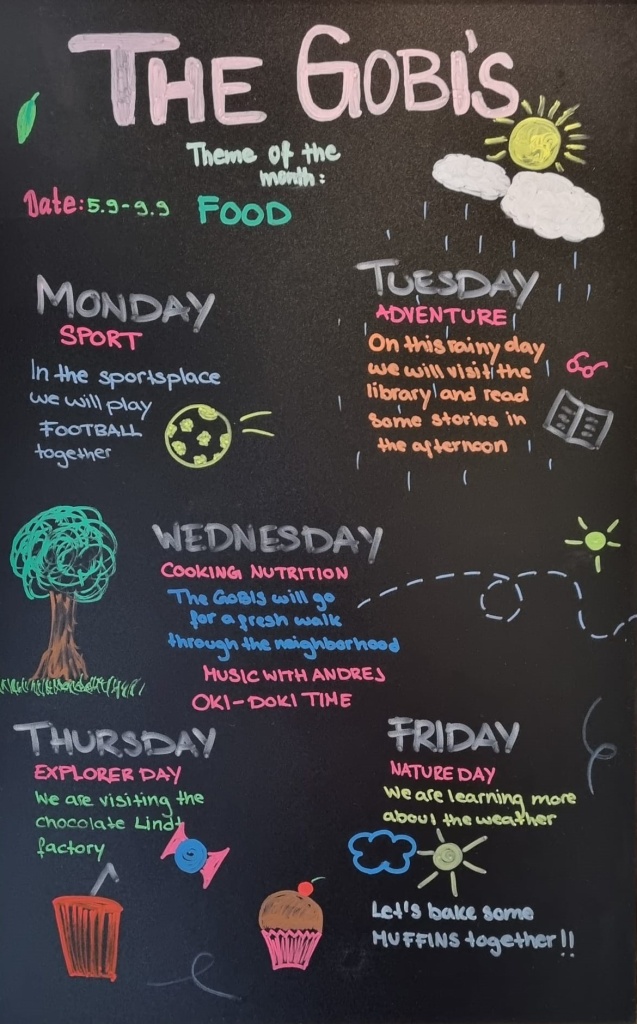 THE GOBI'S
Theme of the
month:
Date: 5.9-9.9 FOOD
MONDAY
SPORT
In the sportsplace
we will play
FOOTBALL
together
TUESDAY
ADVENTURE
On this rainy day
we will visit the
library and read
some stories in
the afternoon
WEDNESDAY
COOKING NUTRITION
The GOBIS will go
for a fresh walk
through the neighborhood
MUSIC WITH ANDREJ
OKI-DOKI TIME
THURSDAY
EXPLORER DAY
We are visiting the
chocolate Lindt
factory
FRIDAY
NATURE DAY
We are learning more
about the weather
Let's bake some
MUFFINS together!!